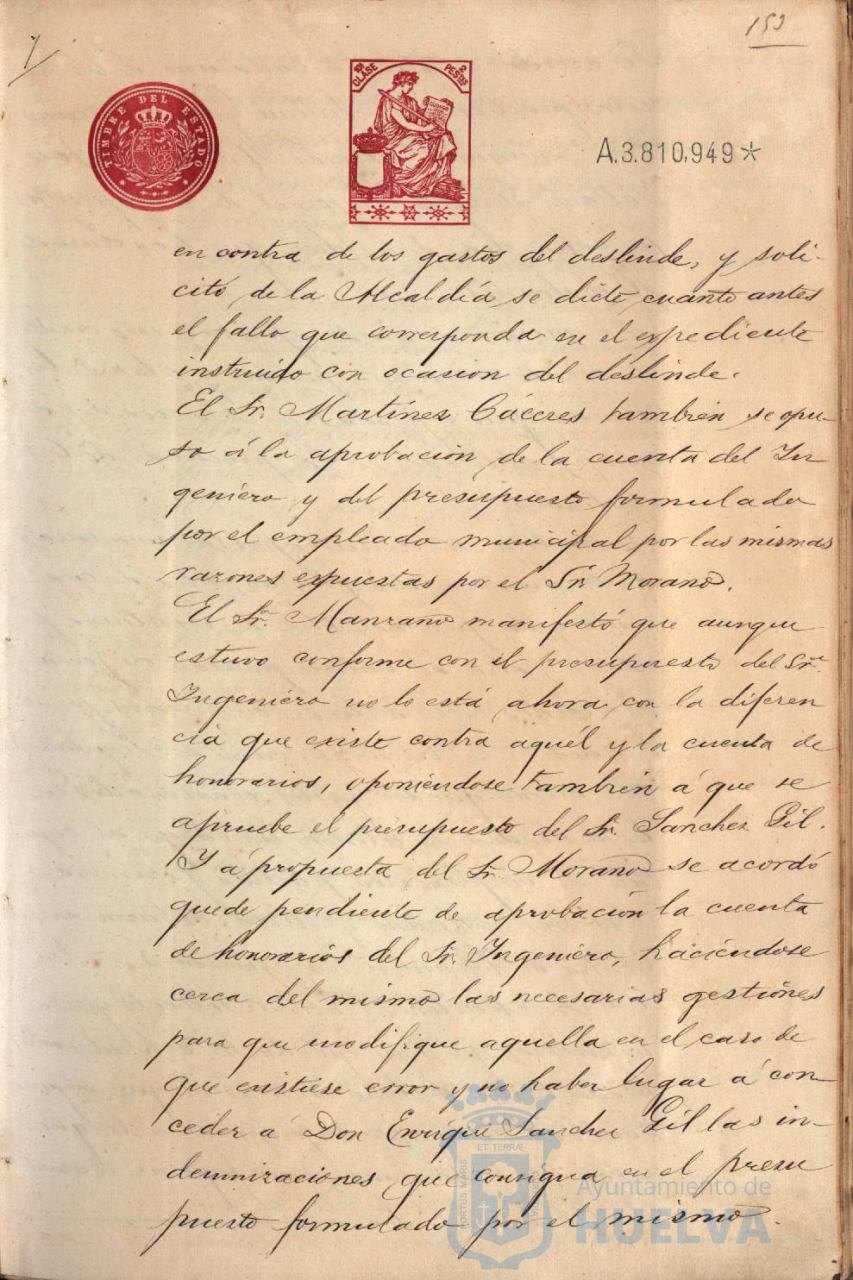 153
TIMBRE DEL ESTADO
10ª CLASE
2 PESETAS
A.3.810.949*
en contra de los gastos del deslinde, y soli-
citó de la Alcaldía se dicte cuanto antes
el fallo que corresponda en el expediente
instruido con ocasion del deslinde.
El Sr. Martínez Cáceres tambien se opu-
so á la aprobación de la cuenta del In
geniero y del presupuesto formulado
por el empleado municipal por las mismas
razones expuestas por el Sr. Morano.
El Sr. Manzano manifestó que aunque
estuvo conforme con el presupuesto del Sr.
Ingeniero no lo está ahora con la diferen
cia que existe contra aquél y la cuenta de
honorarios, oponiéndose tambien á que se
apruebe el presupuesto del Sr. Sanchez Gil.
Y á propuesta del Sr. Morano se acordó
quede pendiente de aprobación la cuenta
de honorarios del Sr. Ingeniero, haciéndose
cerca del mismo las necesarias gestiones
para que modifique aquella en el caso de
que existiese error y no haber lugar á con-
ceder á Don Enrique Sanchez Gil las in-
demnizaciones que consigna en el presu
puesto formulado por el mismo.
Ayuntamiento de
HUELVA